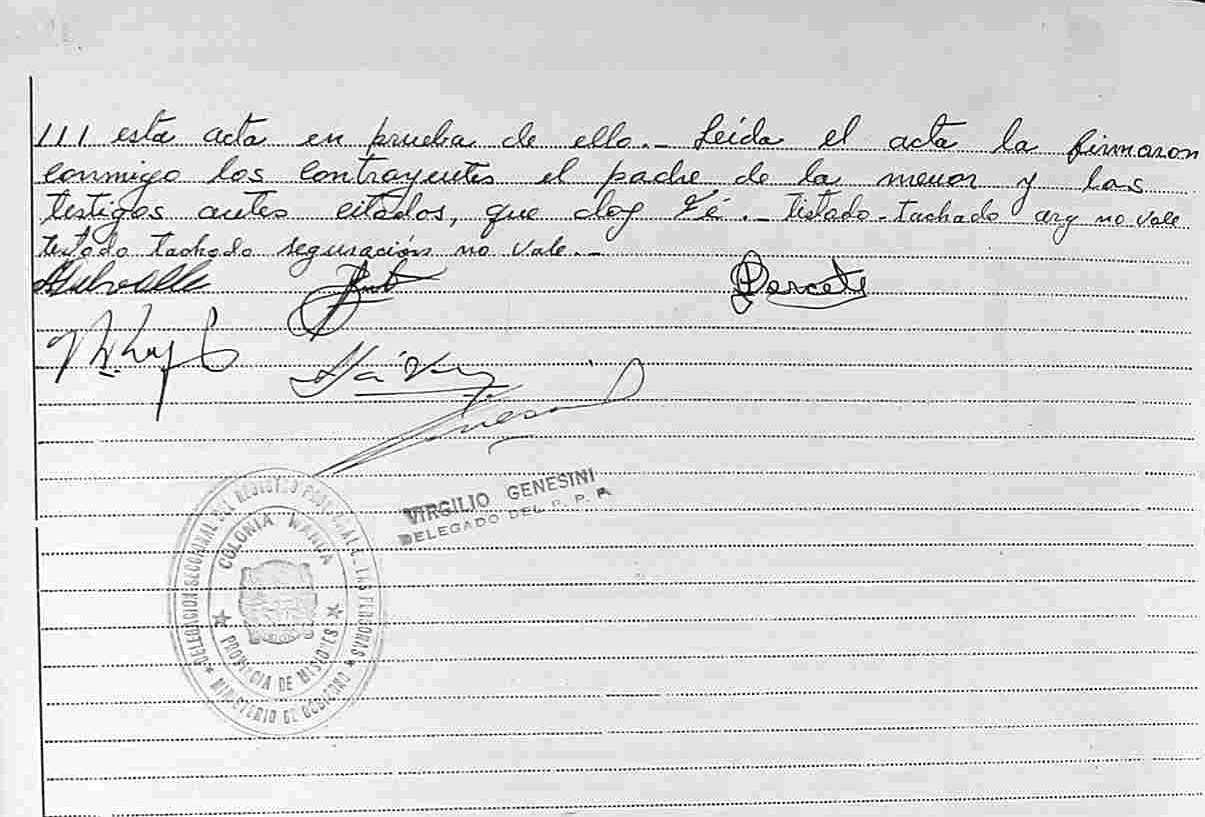 111 esta acta en prueba de ello.- Leída el acta la firmaron
conmigo los contrayentes el padre de la menor y las
testigos antes citados, que doy Fé.- Tistado-Tachado arg no vale
testado Tachado seguración no vale.-
VIRGILIO GENESINI
DELEGADO DEL R. P. P.
DELEGACION SECCIONAL DEL REGISTRO PROVINCIAL DE LAS PERSONAS
COLONIA WANDA
PROVINCIA DE MISIONES
MINISTERIO DE GOBIERNO